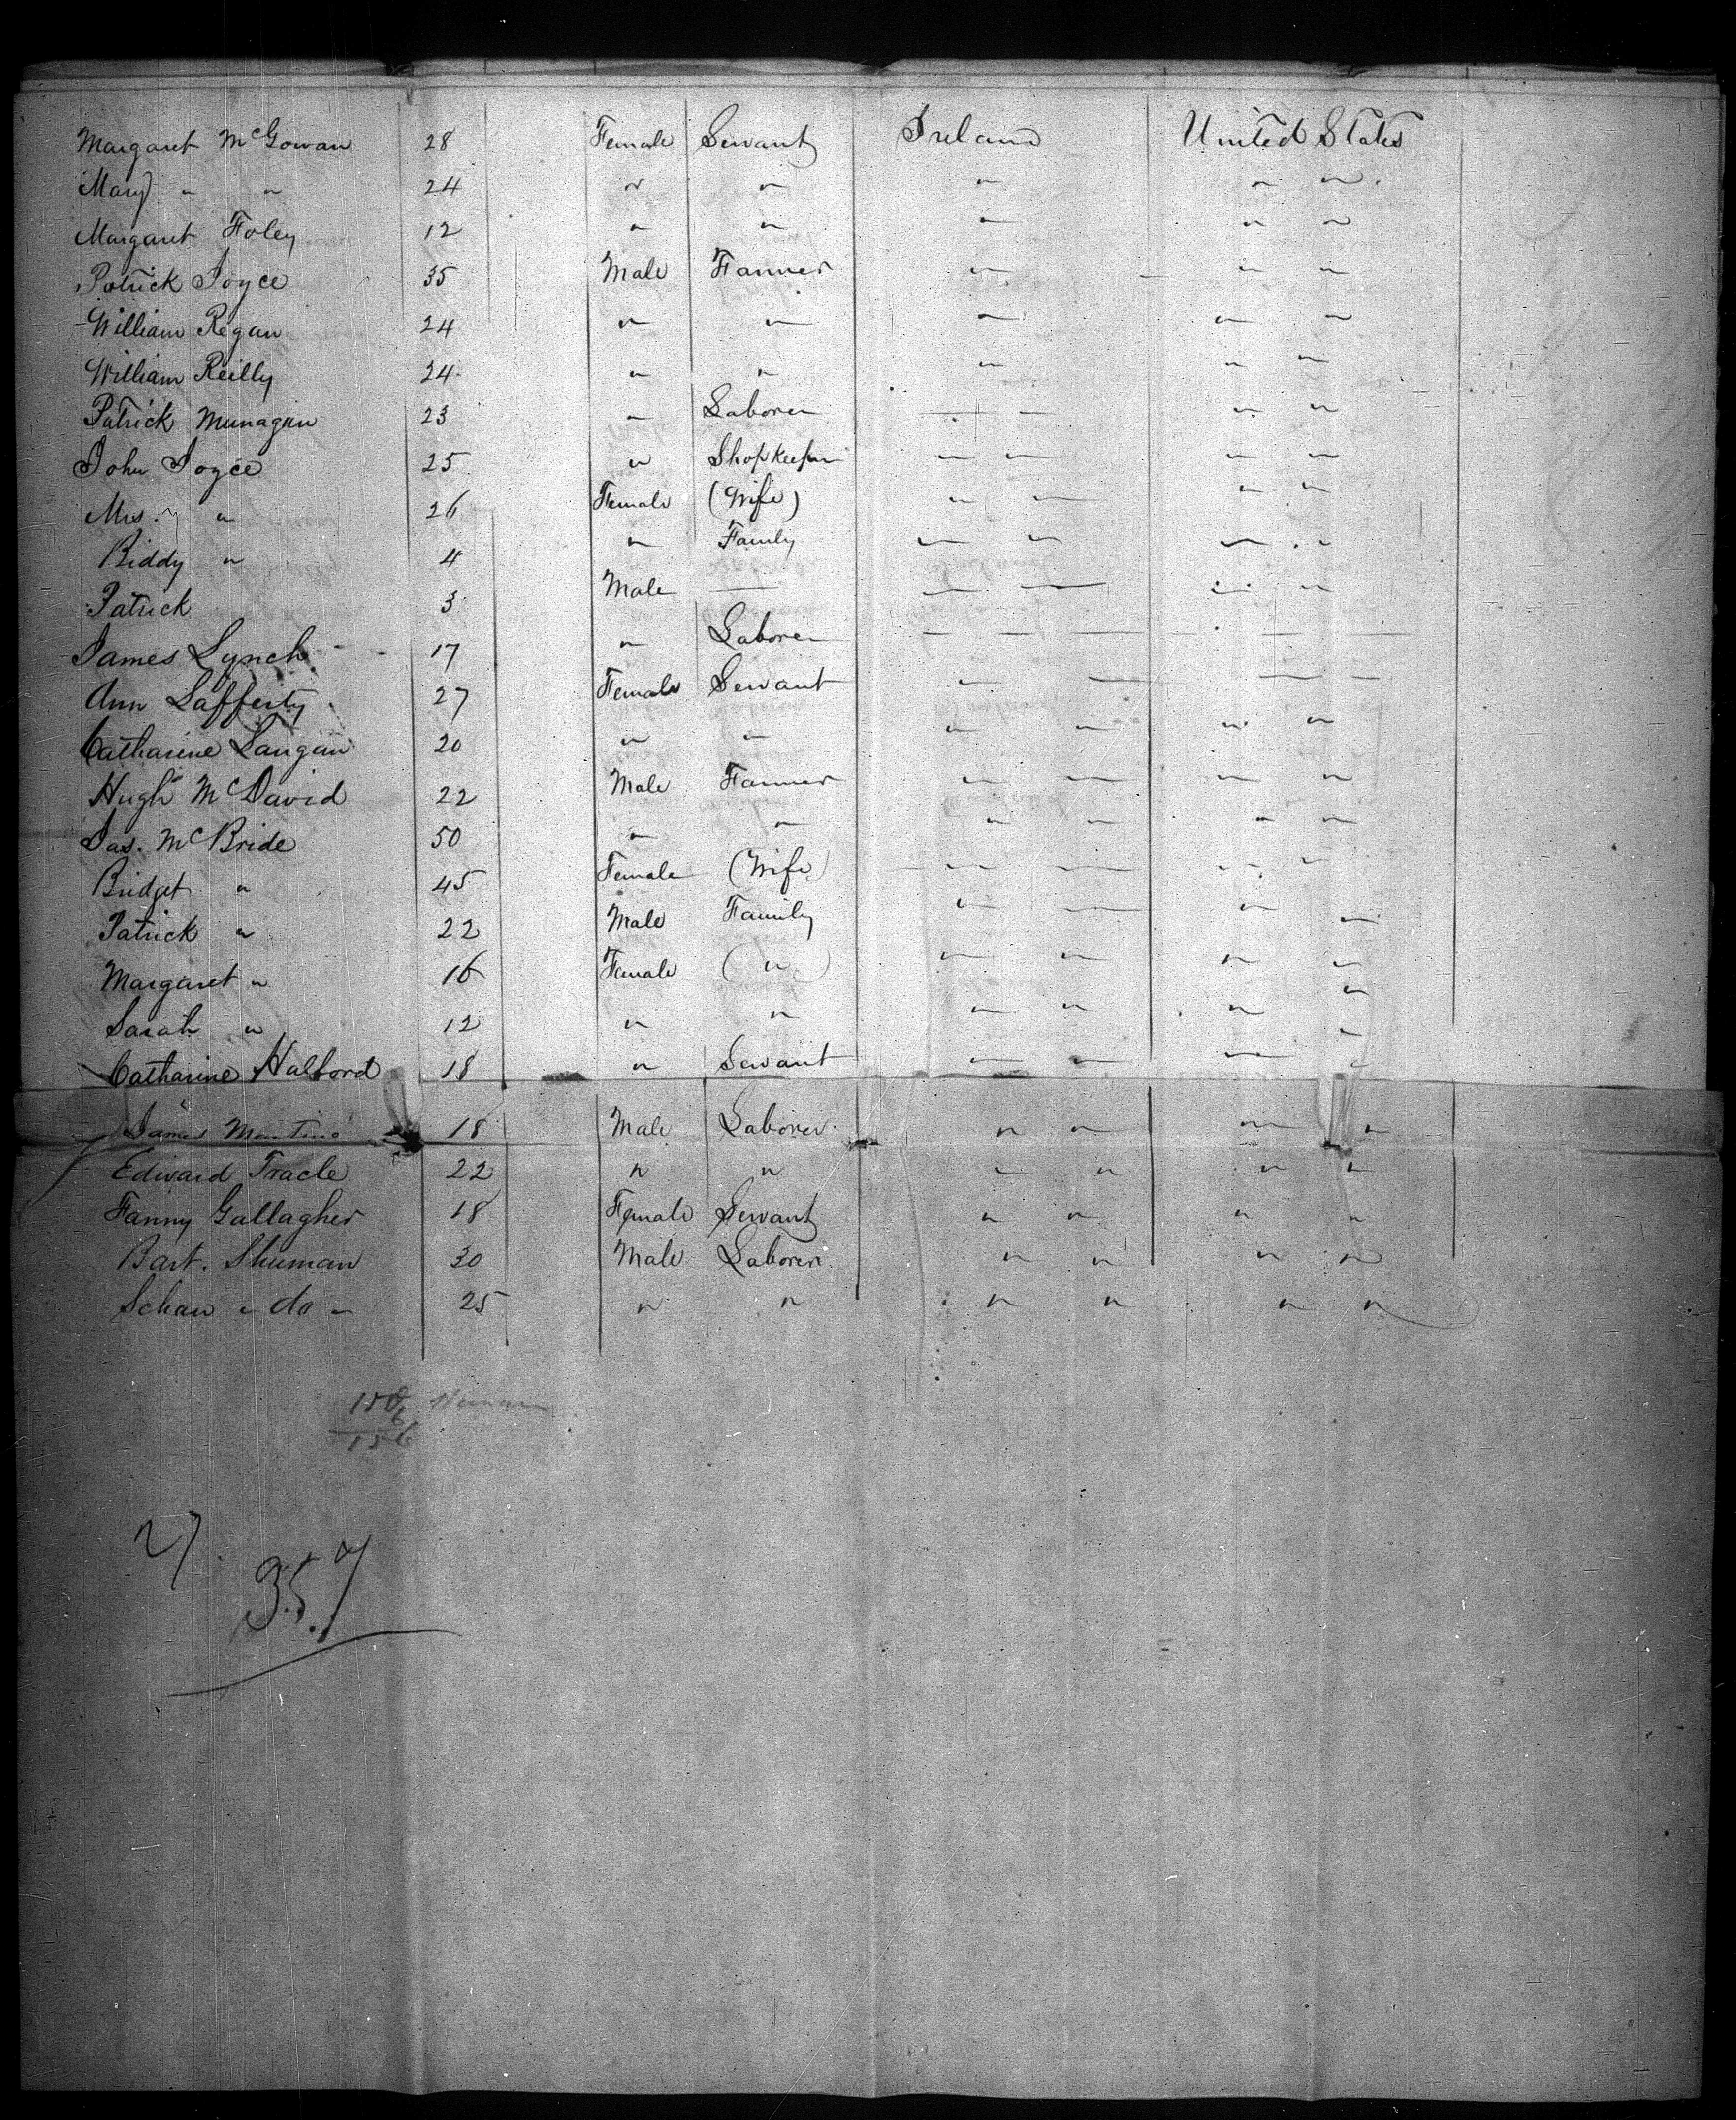 Margaret McGowan 28 Female Servant Ireland United States
Mary " " 24 " " " " "
Margaret Foley 12 " " " " "
Patrick Joyce 35 Male Farmer " " "
William Regan 24 " " " " "
William Reilly 24 " " " " "
Patrick Munagan 23 " Laborer " " " "
John Joyce 25 " Shopkeeper " " " "
Mrs. " 26 Female (Wife) " " " "
Biddy " 4 " Family " " " "
Patrick 3 Male — " " " "
James Lynch 17 " Laborer — — — — —
Ann Lafferty 27 Female Servant " " " "
Catharine Langan 20 " " " " " "
Hugh McDavid 22 Male Farmer " " " "
Jas. McBride 50 " " " " " "
Bridget " 45 Female (Wife) " " " "
Patrick " 22 Male Family " " " "
Margaret " 16 Female ( " ) " " " "
Sarah " 12 " " " " " "
Catharine Halford 18 " Servant " " " "
James 18 Male Laborer " " " "
Edward Tracle 22 " " " " " "
Fanny Gallagher 18 Female Servant " " " "
Bart. Shuman 30 Male Laborer " " " "
Schaw " do " 25 " " " " " "
150
6
156
27
357